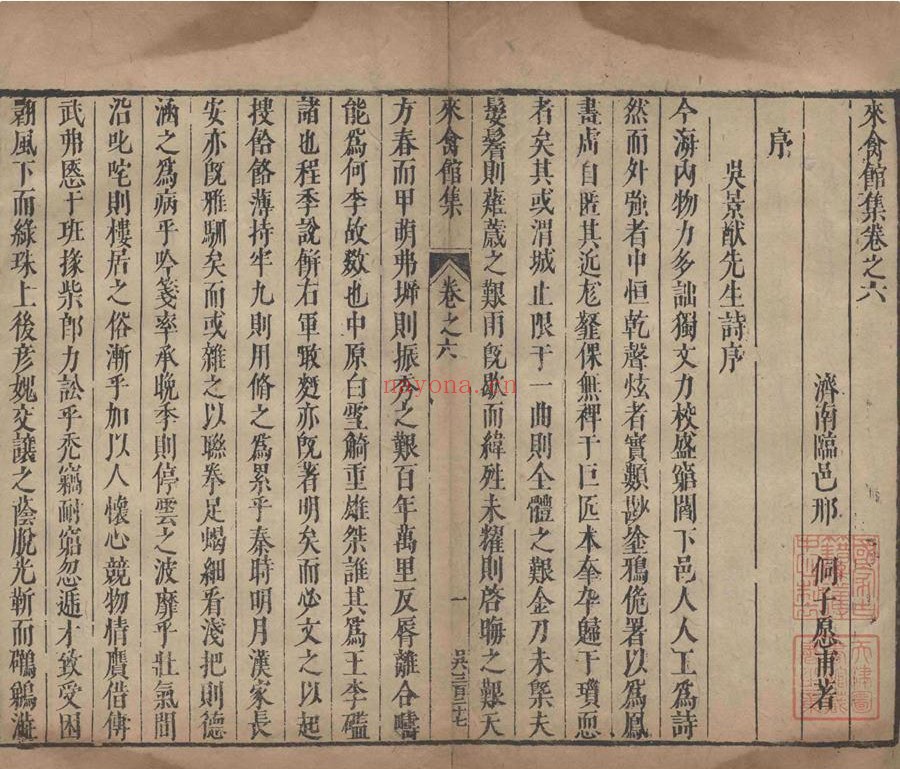 來禽館集卷之六
濟南臨邑邢侗子愿甫著
序
吳景猷先生詩序
今海內物力多詘獨文力校盛窮閻下邑人人工爲詩
然而外強者中恒乾聲炫者實顰鴉佹署以爲鳳
書虎自匿其近尨 倮無裨于巨匹本奉 歸于瓊
者矣其或渭城止限于一曲則全體之艱金刀未槩夫
鬘鬌則蕹薉之艱雨旣歇而緯 未耀則啓晦之艱天
方春而甲萌弗墀則振秀之艱百年萬里反脣離合疇
能爲何李故數也中原白雪觭重雄桀誰其爲王李 
諸也程季說餠右軍 亦旣著明矣而必文之以起
搜 餎薄持牢九則用脩之爲累乎秦時明月漢家長
安亦旣雅馴矣而或雜之以聯拳足蝎細看淺把則德
涵之爲病乎吟箋率承晚季則停雲之波靡乎壯氣間
沿叱咤則樓居之俗漸乎加以人懷心競物情贋借傳
武弗慁于班掾柴郎力訟乎禿竊耐窮忽遞才致受困
翾風下而綠珠上後彥媿交讓之蔭脫光靳而
來禽館集
卷之六
一
吳三百三十七
nayona.cn